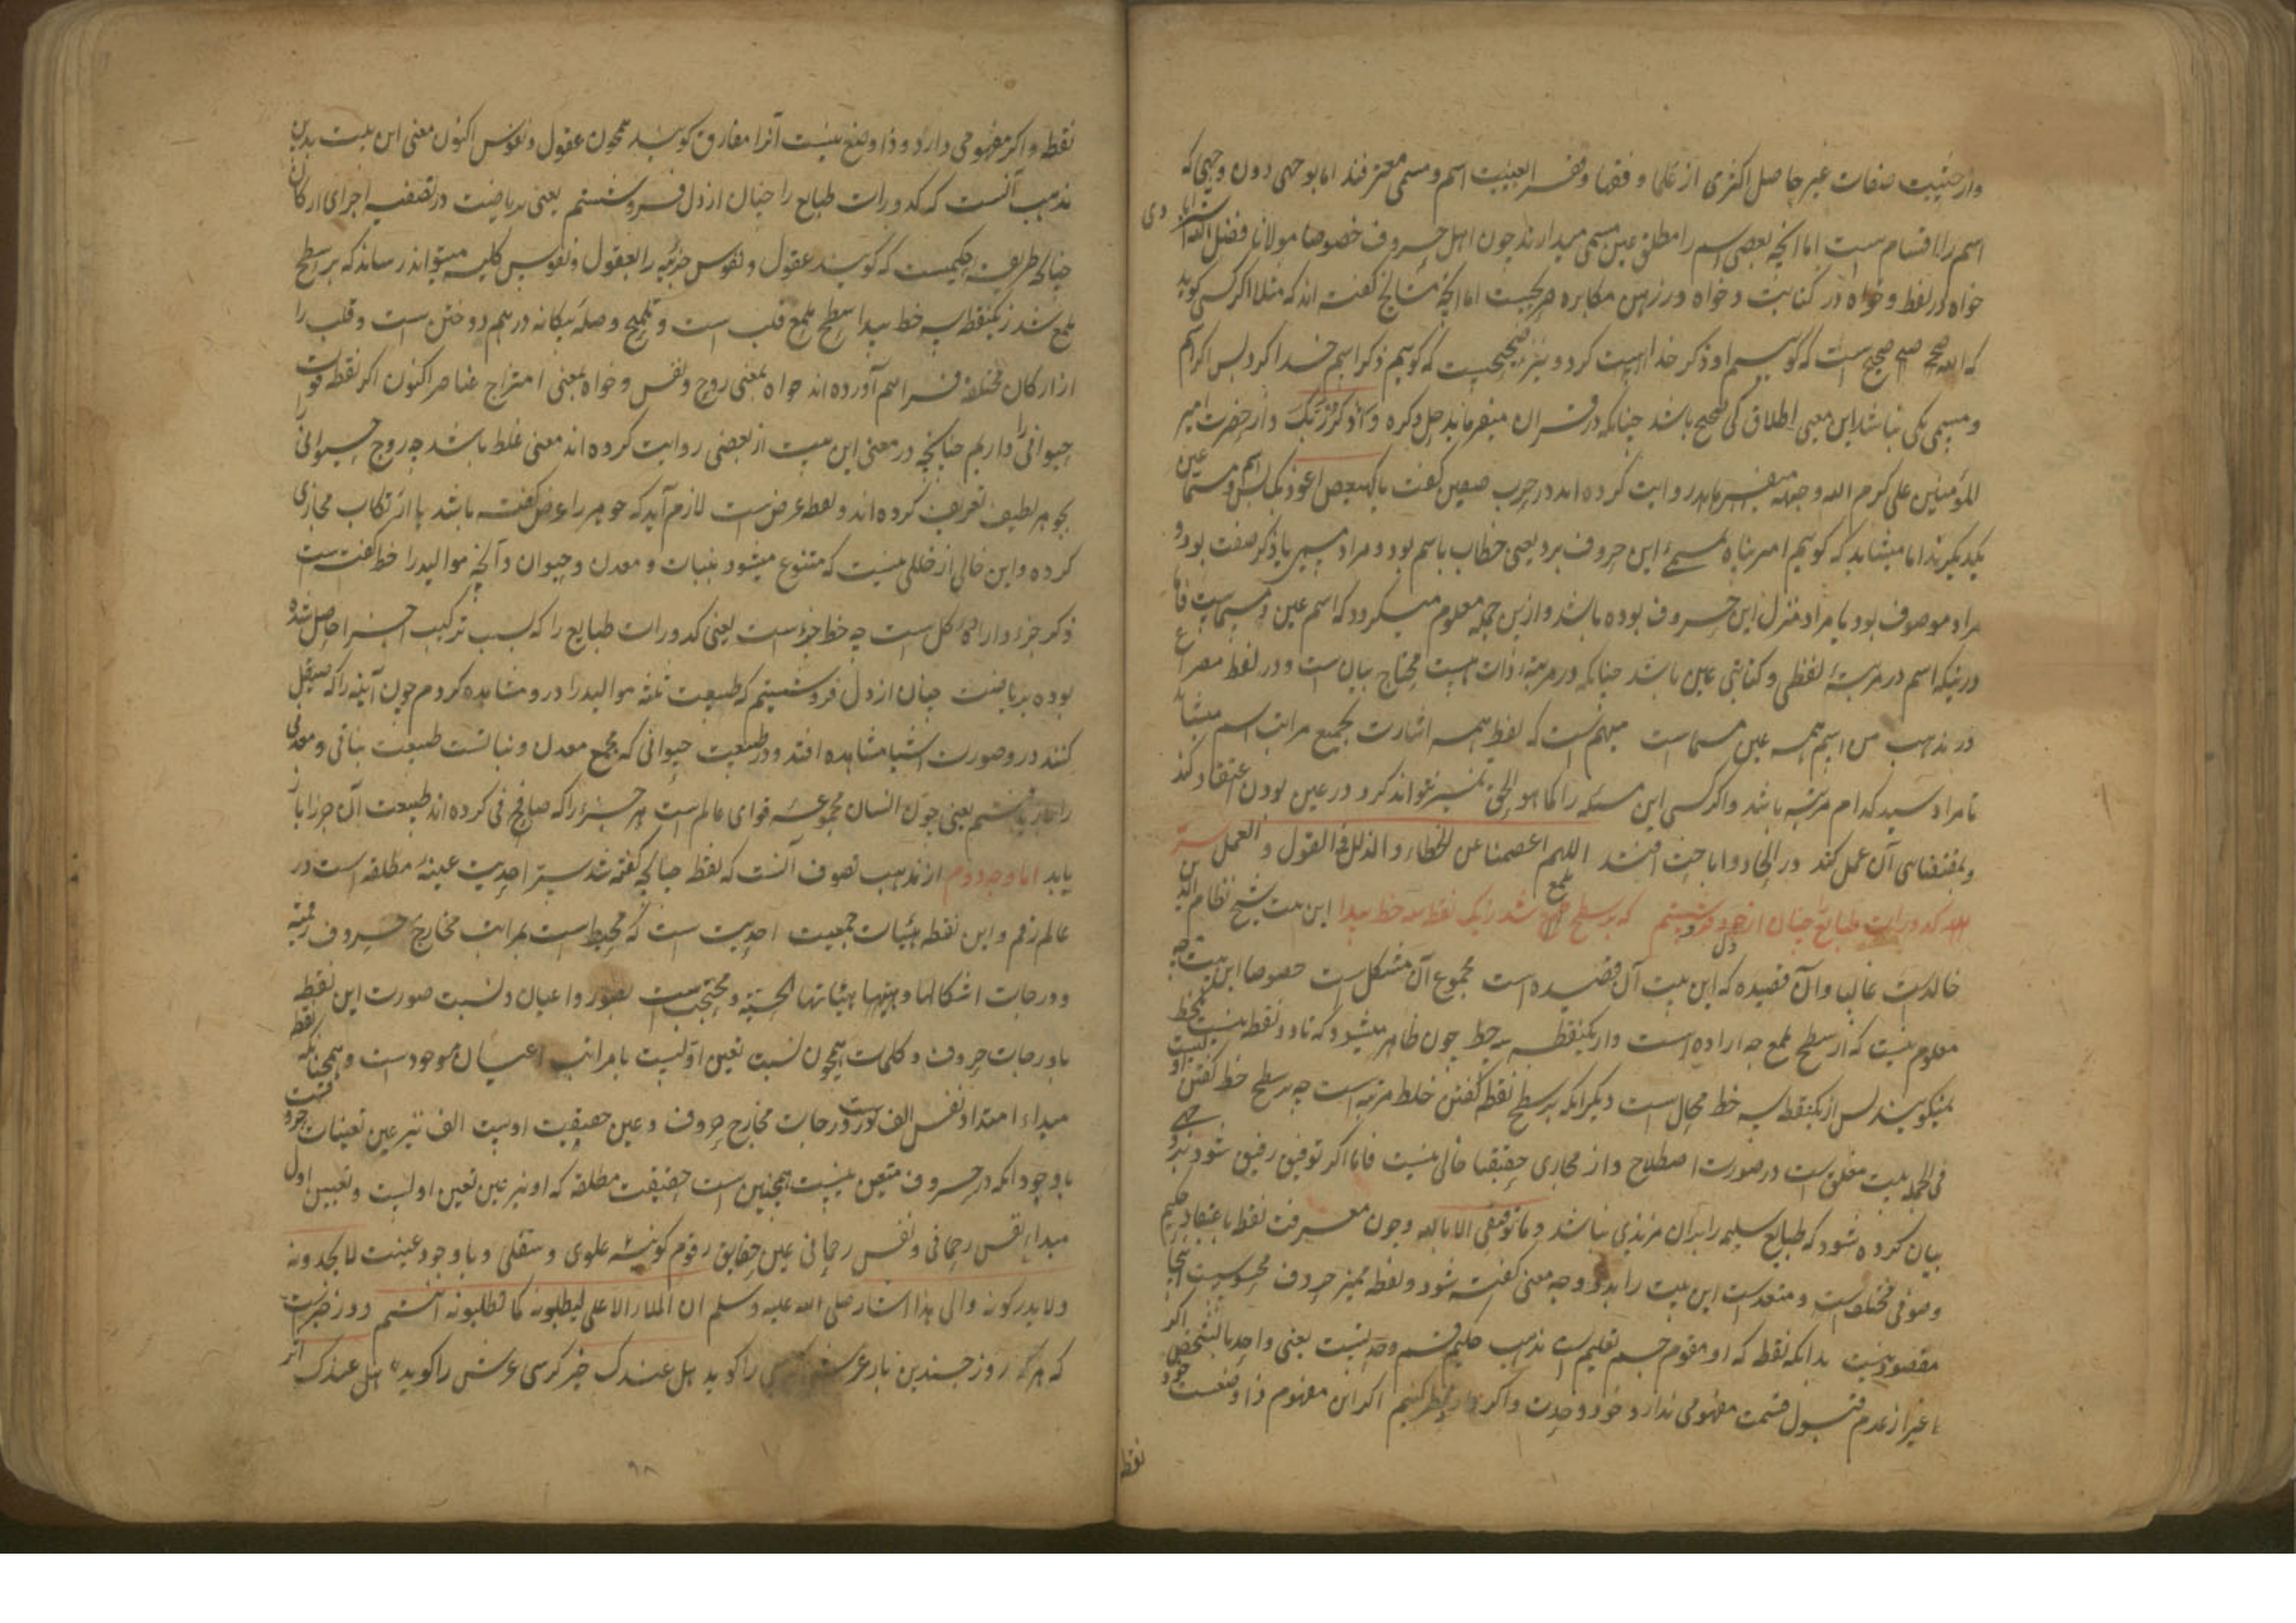 واز حیثیت صفات غیر حاصل اکثری از علما و فقها و بعینیت اسم و مسمی معترفند اما بوجهی دون وجهی که
اسم را اقسام ست اما انچه بعضی اسم را مطلق عین مسمی میدارند چون اهل حروف خصوصا مولانا فضل الله استرابادی
خواه در لفظ و خواه در کتابت و خواه در ذهن مکابره صریحیست اما انچه مشایخ کفته اند که مثلا اکر کسی کوید
که الله صحیح است که کوییم او ذکر خداییست کرد و نیز صحیحیست که کوییم ذکر اسم خدا کرد پس اکر اسم
و مسمی یکی نباشد این معنی اطلاق کی صحیح باشد چنانکه در قران میفرماید جل ذکره واذکر ربک واز حضرت امیر
المؤمنین علی کرم الله وجهه روایت کرده اند در حرب صفین کفت یا کهیعص اعوذ بک پس اسم و مسما عین
یکدیکرند اما میشاید که کوییم امیر پناه بمسمی این حروف برد یعنی خطاب باسم بود و مراد مسمی یا ذکر صفت بود و
مراد موصوف بود یا مراد منزل این حروف بوده باشد وازین جمله معلوم میکردد که اسم عین مسماست فاما
درینکه اسم در مرتبه لفظی و کتابتی عین باشد چنانکه در مرتبه ذات هست محتاج بیان ست و در لفظ مصراع
در مذهب من اسم همه عین مسماست مبهم است که لفظ همه اشارت بجمیع مراتب اسم میشاید
تا مراد سید کدام مرتبه باشد واکر کسی این مسئله را کما هو الحق تمیز نتواند کرد و در عین بودن اعتقاد کند
و بمقتضای آن عمل کند در الحاد و اباحت افتد اللهم اعصمنا عن الخطاء والزلل فی القول والعمل
کدورات طبایع را چنان از دل فروشستم که بر سطح ملمع شد زیک نقطه سه خط پیدا این بیت شیخ نظام الدین
خالدیست غالبا وآن قصیده که این بیت آن قصیده است مجموع آن مشکل است خصوصا این بیت چه
معلوم نیست که از سطح ملمع چه اراده است واز یکنقطه سه خط چون ظاهر میشود که تا دو نقطه نیست خط
نمیکویند پس از یکنقطه سه خط محال است دیکر انکه بر سطح نقطه کفتن خلط مرتبه است چه بر سطح خط کفتن اولیست
فی الجمله بیت مغلق است در صورت اصطلاح واز مجازی حقیقتا خالی نیست فاما اکر توفیق رفیق شود بر وجهی
بیان کرده شود که طبایع سلیمه را بر آن مزیدی نباشد وما توفیقی الا بالله وچون معرفت نقطه باعتقاد حکیم
وصوفی مختلف است و متعدد است این بیت را بدو وجه معنی کفته شود و نقطه ممیز حروف محسوس اینجا
مقصود نیست بدانکه نقطه که او مقوم جسم تعلیمی است بمذهب حکیم قسم وحدتست یعنی واحد بالشخص اکر
غیر از عدم قبول قسمت مفهومی ندارد خود وحدت واکر دارد نظر کنیم اکر این مفهوم ذا وضعست
نقطه
نقطه واکر مفهومی دارد وذا وضع نیست آنرا مفارق کویند همچون عقول و نفوس اکنون معنی این بیت بدین
مذهب آنست که کدورات طبایع را چنان از دل فروشستم یعنی بریاضت در تصفیه اجزای ارکان
چنانکه طریقه حکیمست که کویند عقول و نفوس جزئیه را بعقول و نفوس کلیه میتواند رساند که بر سطح
ملمع شد ز یکنقطه سه خط پیدا سطح ملمع قلب است و تلمیع وصله بیکانه در هم دوختن است و قلب را
از ارکان مختلفه فراهم آورده اند خواه بمعنی روح و نفس و خواه بمعنی امتزاج عناصر اکنون اکر نقطه قوت
حیوانی را داریم چنانچه در معنی این بیت از بعضی روایت کرده اند معنی غلط باشد چه روح حیوانی را
بجوهر لطیف تعریف کرده اند و نقطه عرض است لازم آید که جوهر را عرض کفته باشد یا ارتکاب مجازی
کرده و این خالی از خللی نیست که متنوع میشود بنبات و معدن و حیوان وآنچه موالید را خط کفته است
ذکر جزء وارادۀ کل است چه خط جزء است یعنی کدورات طبایع را که بسبب ترکیب اجزا حاصل شده
بوده بریاضت چنان از دل فروشستم که طبیعت ثلثه موالید را درو مشاهده کردم چون آینه را که صیقل
کنند درو صورت اشیا مشاهده افتد و در طبیعت حیوانی که مجمع معدن و نباتست طبیعت نباتی و معدنی
را یعنی چون انسان مجموعه قوای عالم است هر جزء را که صافی کرده اند طبیعت آن جزء باز
یابد اما وجه دوم از مذهب تصوف آنست که نقطه چنانچه کفته شد سر احدیت عینیه مطلقه است در
عالم رقم و این نقطه بهیات جمعیت احدیت ست که محیط است بمراتب مخارج حروف رقمیه
و درجات اشکالها وهیئتها الحسیه و محتجب است بصور واعیان و نسبت صورت این نقطه
با درجات حروف و کلمات همچون نسبت تعین اولیست با مراتب اعیان موجود ست و همچنانکه نقطه
مبداء امتداد نفس الف است و درجات مخارج حروف و عین حقیقت اوست الف نیز عین تعینات حروفست
باوجود انکه در حروف متعین نیست همچنین است حقیقت مطلقه که او نیز عین تعین اولست و تعین اول
مبداء نفس رحمانی و نفس رحمانی عین حقایق رقوم کونیه علوی و سفلی و باوجود عینیت لا یجدونه
ولا یدرکونه والی هذا اشار صلی الله علیه وسلم ان الملاء الاعلی لیطلبونه کما تطلبونه انتم و در خبرست
که هر روز چندین بار عرش کرسی را کوید هل عندک خبر کرسی عرش را کوید هل عندک اثر
۹۸